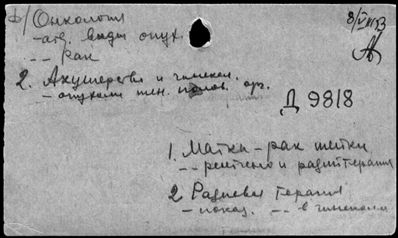 ф/ Онкология
- отд. виды опух.
- - рак
8/V 1953
2. Акушерство и гинекол.
- опухоли жен. полов. орг.
Д 9818
1. Матки - рак шейки
- - рентгено и радиотерапия
2 Радиевая терапия
- показ. - - в гинекологии